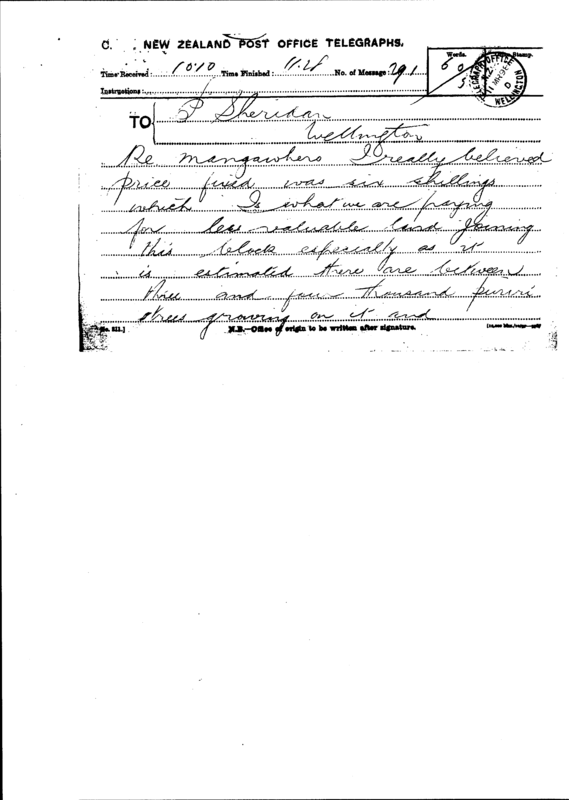 C. NEW ZEALAND POST OFFICE TELEGRAPHS.
Words. Stamp.
Time Received: 10.10 Time Finished: 11.4 No. of Message: 291
60
5
TELEGRAPH OFFICE N.Z. 11 MH WELLINGTON
Instructions:
TO P Sheridan
Wellington
Re mangawhero I really believed
price fixed was six shillings
which Is what we are paying
for less valuable land Joining
this block especially as it
is estimated there are between
three and four thousand puriri
trees growing on it and
No. 211.] N.B.—Office of origin to be written after signature.